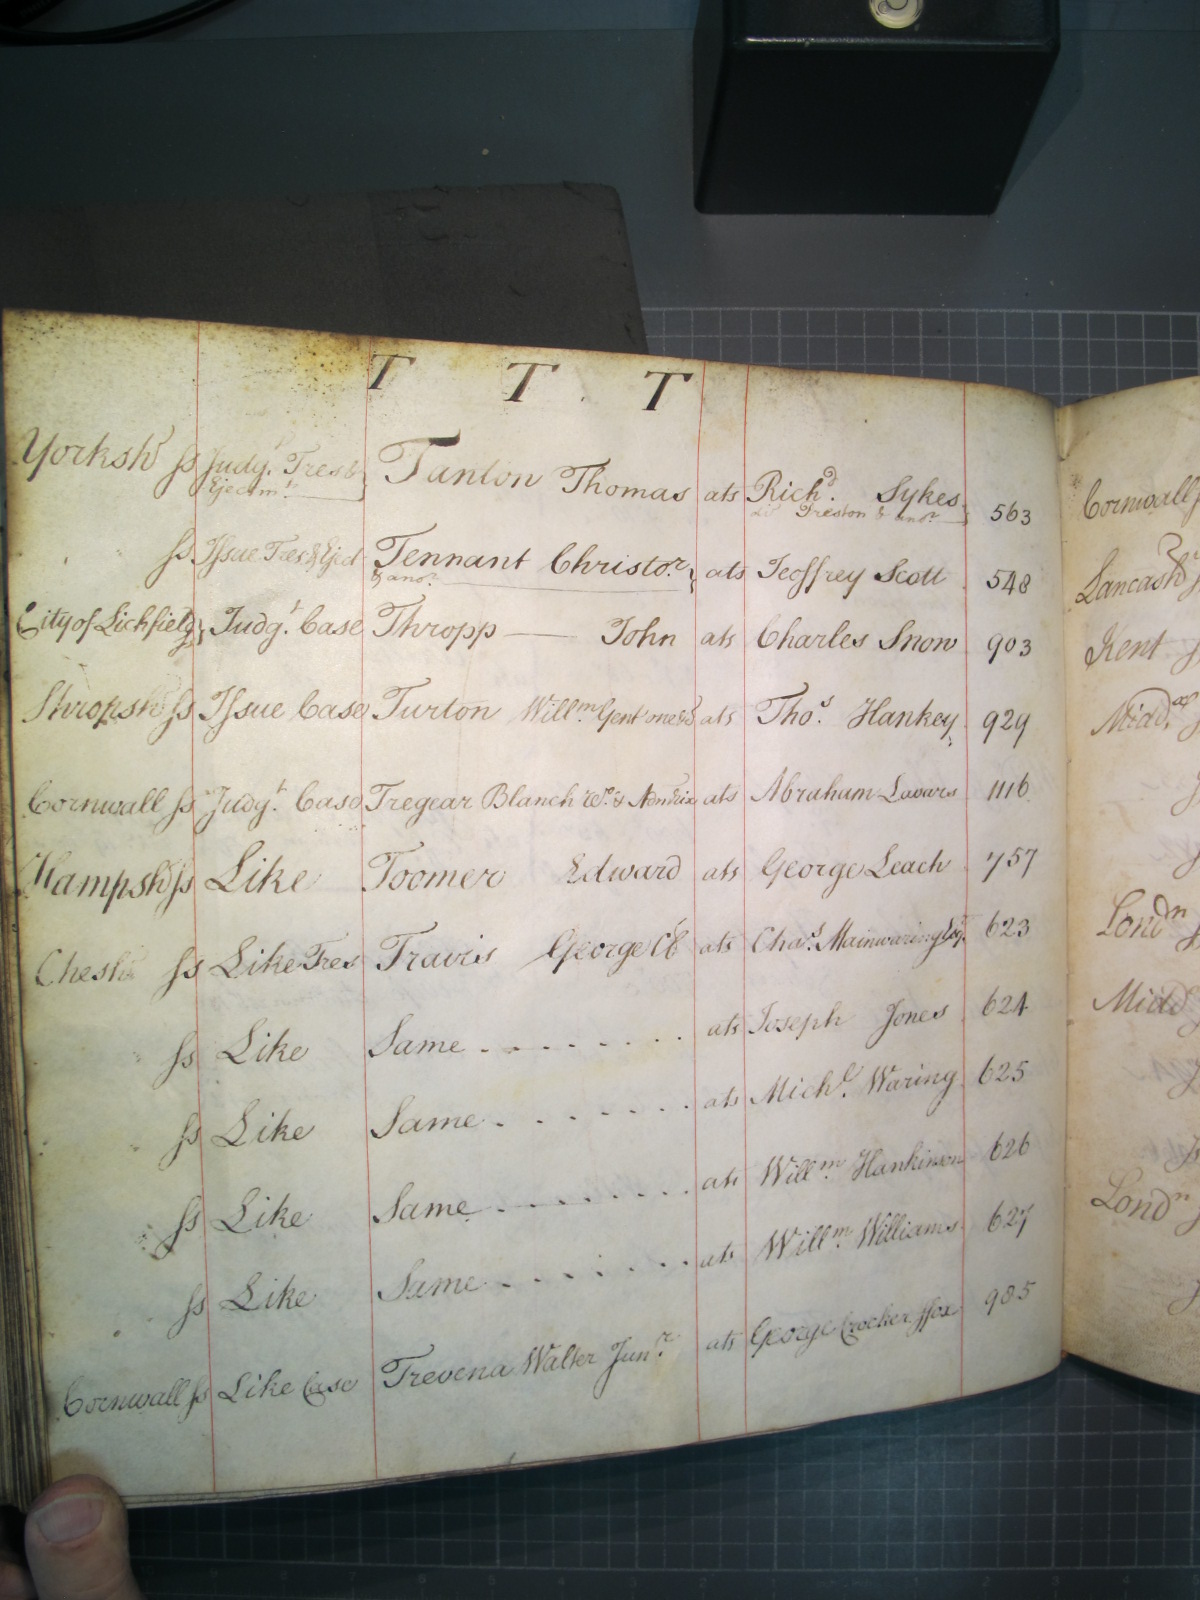 T T T
Yorksh^r ss Judg^t. Tres & Tanton Thomas ats Rich^d. Sykes 563
Ejectm^t.
ss Issue Tres & Eject Tennant Christo^r. ats Jeoffrey Scott 548
& ano^r.
City of Lichfield ss Judg^t. Case Thropp — John ats Charles Snow 903
Shropsh^r ss Issue Case Turton Will^m. Gent one &c ats Tho^s. Hankey 929
Cornwall ss Judg^t. Case Tregear Blanch Wo. & Admrix ats Abraham Lavars 1116
Hampsh^r ss Like Toomer Edward ats George Leach 757
Chesh^r ss Like Tres Travis George Cl ats Cha^s. Mainwaring Esq^r. 623
ss Like Same - - - - - - - - ats Joseph Jones 624
ss Like Same - - - - - - ats Mich^l. Waring 625
ss Like Same - - - - - - - - ats Will^m. Hankinson 626
ss Like Same - - - - - - - ats Will^m. Williams 627
Cornwall ss Like Case Trevena Walter Jun^r. ats George Crocker ffox 985
Cornwall
Lancash^r
Kent
Midd^x
Lond^n
Midd^x
Lond^n